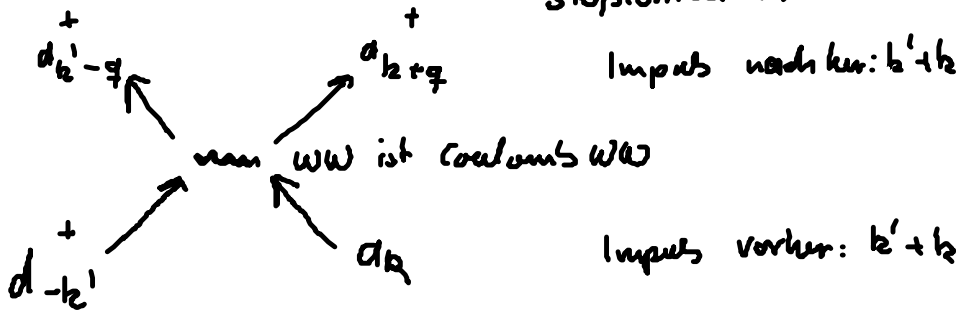 + +
d k'-q a k+q Impuls nachher: k'+k
WW ist Coulomb WW
+
d -k' a k Impuls vorher: k'+k